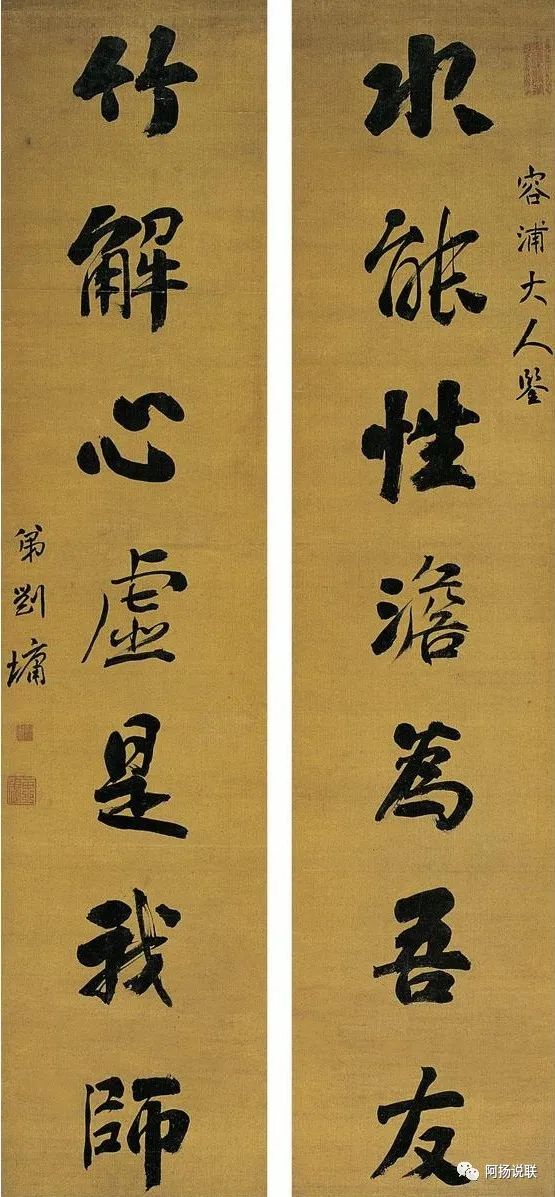 容浦大人鑒
水能性澹為吾友
竹解心虛是我師
弟劉墉
阿扬说联